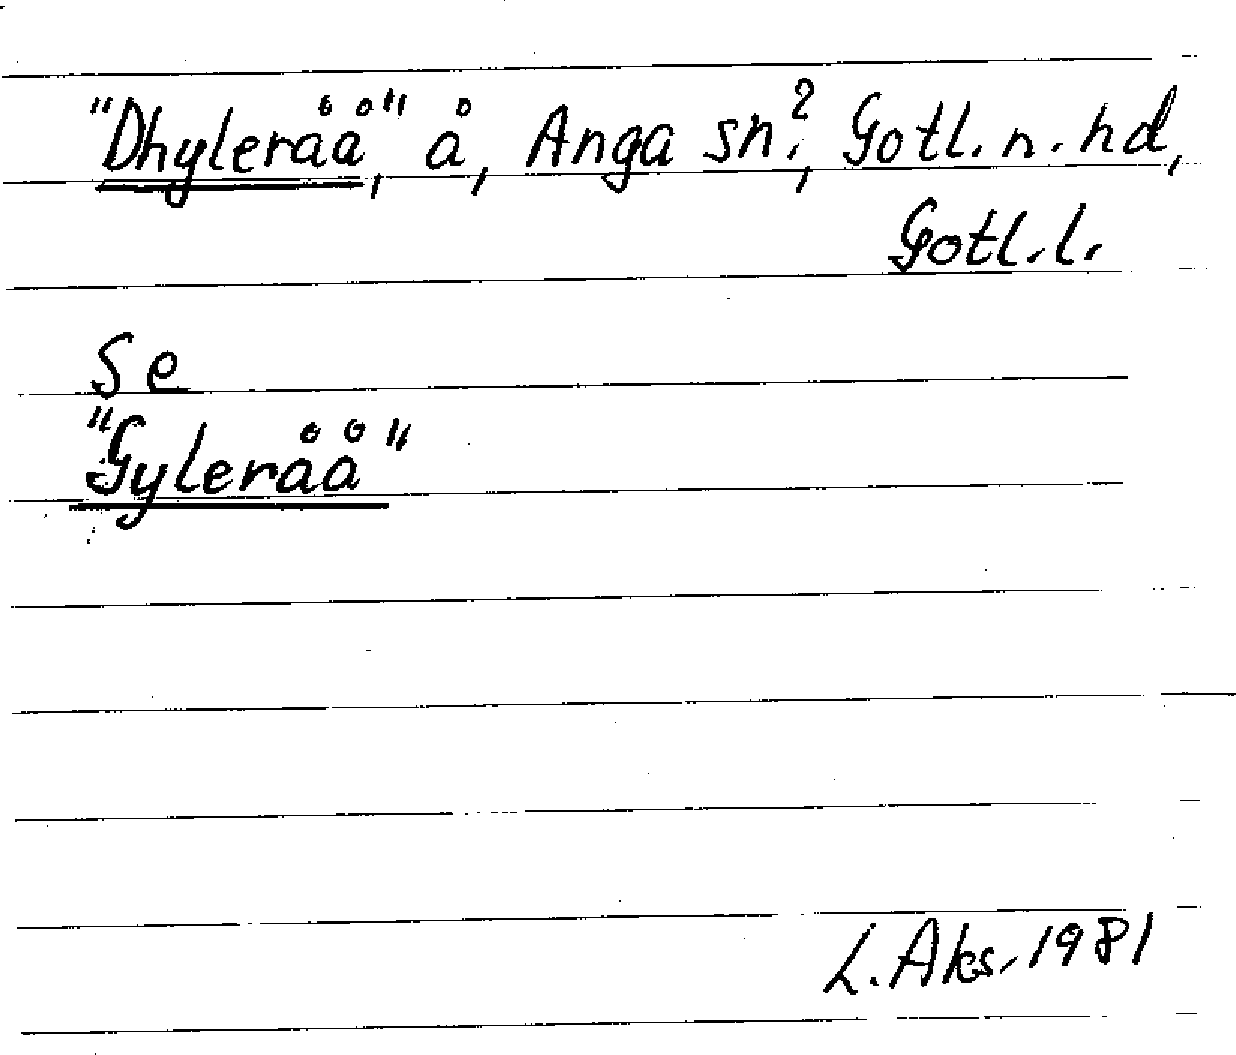 "Dhyleråå", å, Anga sn?, Gotl. n. hd,
Gotl. l.
Se
"Gyleråå"
L. Aks. 1981